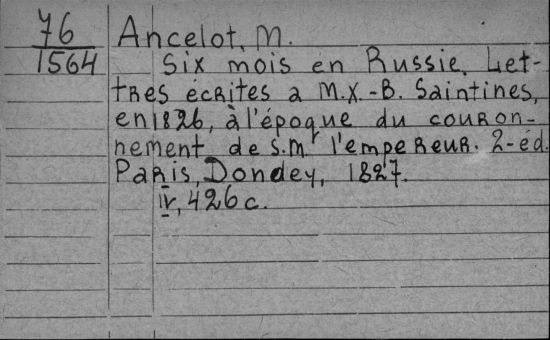 76 Ancelot, M.
1564 Six mois en Russie. Let-
tres écrites a M.X.-B. Saintines,
en 1826, à l'époque du couron-
nement de s.m. l'empereur. 2-éd.
Paris, Dondey, 1827.
IV, 426 c.